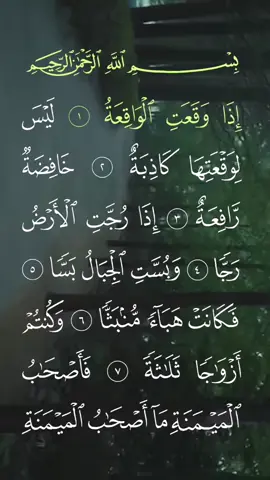 بِسْمِ ٱللَّهِ ٱلرَّحْمَٰنِ ٱلرَّحِيمِ
إِذَا وَقَعَتِ ٱلْوَاقِعَةُ ١ لَيْسَ
لِوَقْعَتِهَا كَاذِبَةٌ ٢ خَافِضَةٌ
رَّافِعَةٌ ٣ إِذَا رُجَّتِ ٱلْأَرْضُ
رَجًّا ٤ وَبُسَّتِ ٱلْجِبَالُ بَسًّا ٥
فَكَانَتْ هَبَآءً مُّنۢبَثًّا ٦ وَكُنتُمْ
أَزْوَٰجًا ثَلَٰثَةً ٧ فَأَصْحَٰبُ
ٱلْمَيْمَنَةِ مَآ أَصْحَٰبُ ٱلْمَيْمَنَةِ